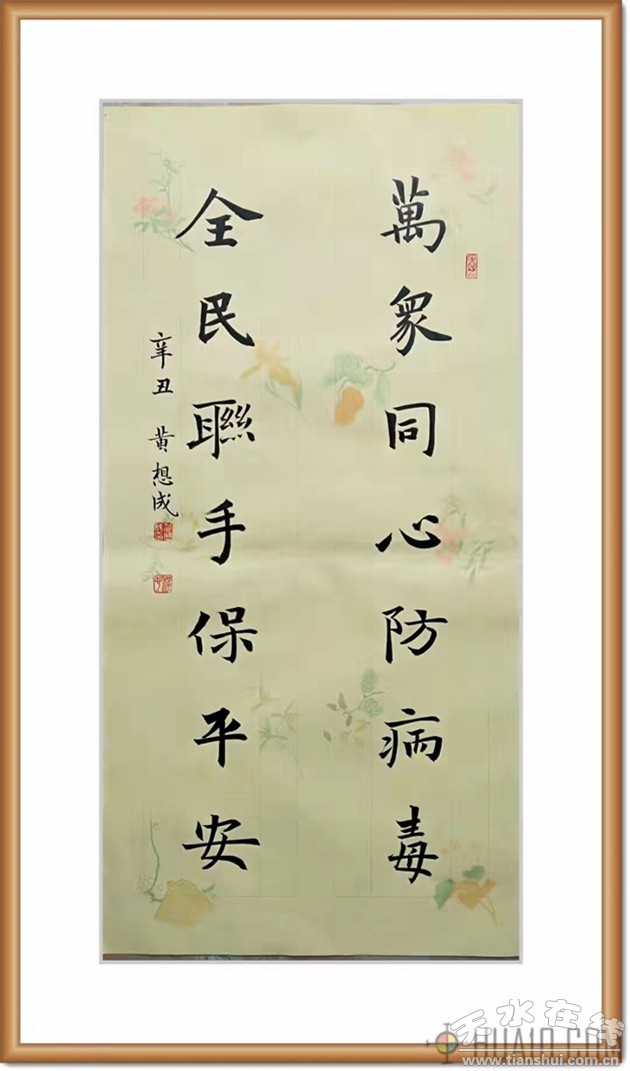 萬眾同心防病毒
全民聯手保平安
辛丑 黄想成
天水在线
HUA10.COM
www.tianshui.com.cn